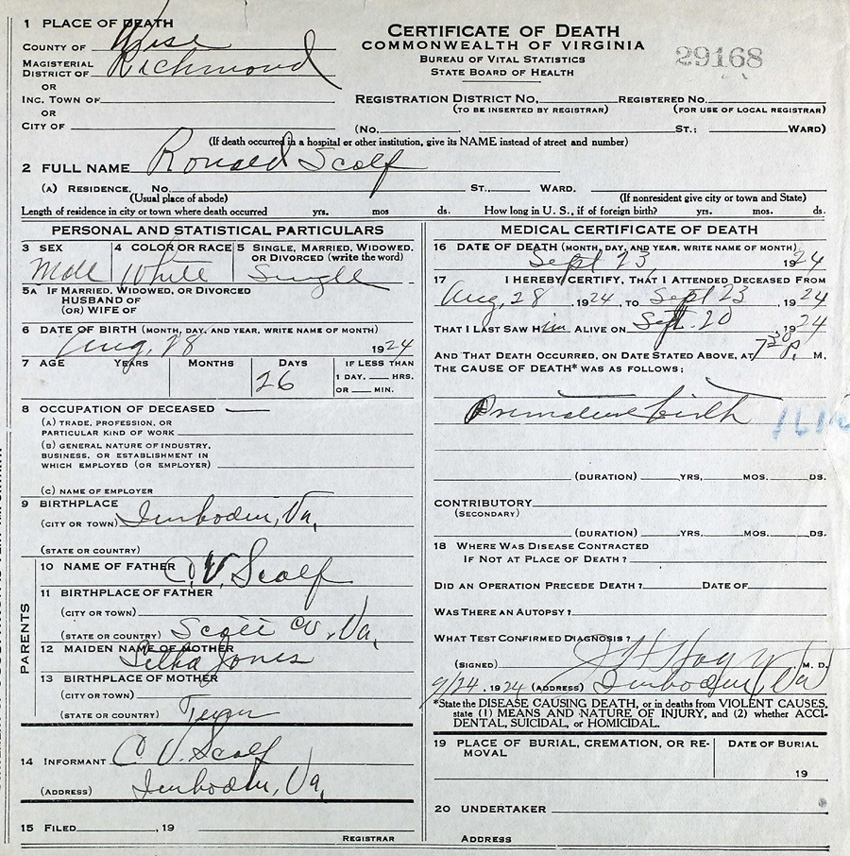 1 PLACE OF DEATH
COUNTY OF Wise
MAGISTERIAL
DISTRICT OF Richmond
OR
INC. TOWN OF
OR
CITY OF
CERTIFICATE OF DEATH
COMMONWEALTH OF VIRGINIA
BUREAU OF VITAL STATISTICS
STATE BOARD OF HEALTH
29168
REGISTRATION DISTRICT NO. REGISTERED NO.
(TO BE INSERTED BY REGISTRAR) (FOR USE OF LOCAL REGISTRAR)
(NO. ST.; WARD)
(If death occurred in a hospital or other institution, give its NAME instead of street and number)
2 FULL NAME Ronald Scalf
(A) RESIDENCE. NO. ST. WARD.
(Usual place of abode) (If nonresident give city or town and State)
Length of residence in city or town where death occurred yrs. mos ds. How long in U. S., if of foreign birth? yrs. mos. ds.
PERSONAL AND STATISTICAL PARTICULARS
3 SEX 4 COLOR OR RACE 5 SINGLE, MARRIED, WIDOWED,
OR DIVORCED (write the word)
Male White Single
5A IF MARRIED, WIDOWED, OR DIVORCED
HUSBAND OF
(OR) WIFE OF
6 DATE OF BIRTH (MONTH, DAY, AND YEAR, WRITE NAME OF MONTH)
Aug, 28 1924
7 AGE YEARS MONTHS DAYS IF LESS THAN
26 1 DAY. HRS.
OR MIN.
8 OCCUPATION OF DECEASED
(A) TRADE, PROFESSION, OR
PARTICULAR KIND OF WORK
(B) GENERAL NATURE OF INDUSTRY,
BUSINESS, OR ESTABLISHMENT IN
WHICH EMPLOYED (OR EMPLOYER)
(C) NAME OF EMPLOYER
9 BIRTHPLACE
(CITY OR TOWN) Imboden, Va,
(STATE OR COUNTRY)
PARENTS
10 NAME OF FATHER C. V. Scalf
11 BIRTHPLACE OF FATHER
(CITY OR TOWN)
(STATE OR COUNTRY) Scott Co, Va,
12 MAIDEN NAME OF MOTHER
Jones
13 BIRTHPLACE OF MOTHER
(CITY OR TOWN)
(STATE OR COUNTRY) Tenn
14 INFORMANT C. V. Scalf
(ADDRESS) Imboden, Va,
15 FILED , 19
REGISTRAR
MEDICAL CERTIFICATE OF DEATH
16 DATE OF DEATH (MONTH, DAY, AND YEAR, WRITE NAME OF MONTH)
Sept 23, 1924
17 I HEREBY CERTIFY, THAT I ATTENDED DECEASED FROM
Aug, 28 1924, TO Sept 23, 1924
THAT I LAST SAW him ALIVE ON Sept. 20 1924
AND THAT DEATH OCCURRED, ON DATE STATED ABOVE, AT 7 30 P. M.
THE CAUSE OF DEATH* WAS AS FOLLOWS:
Premature birth
(DURATION) YRS, MOS. DS.
CONTRIBUTORY
(SECONDARY)
(DURATION) YRS, MOS. DS.
18 WHERE WAS DISEASE CONTRACTED
IF NOT AT PLACE OF DEATH?
DID AN OPERATION PRECEDE DEATH? DATE OF
WAS THERE AN AUTOPSY?
WHAT TEST CONFIRMED DIAGNOSIS?
(SIGNED) M. D.
9/24, 1924 (ADDRESS) Imboden, Va
*State the DISEASE CAUSING DEATH, or in deaths from VIOLENT CAUSES,
state (1) MEANS AND NATURE OF INJURY, and (2) whether ACCI-
DENTAL, SUICIDAL, or HOMICIDAL.
19 PLACE OF BURIAL, CREMATION, OR RE-
MOVAL
DATE OF BURIAL
19
20 UNDERTAKER
ADDRESS